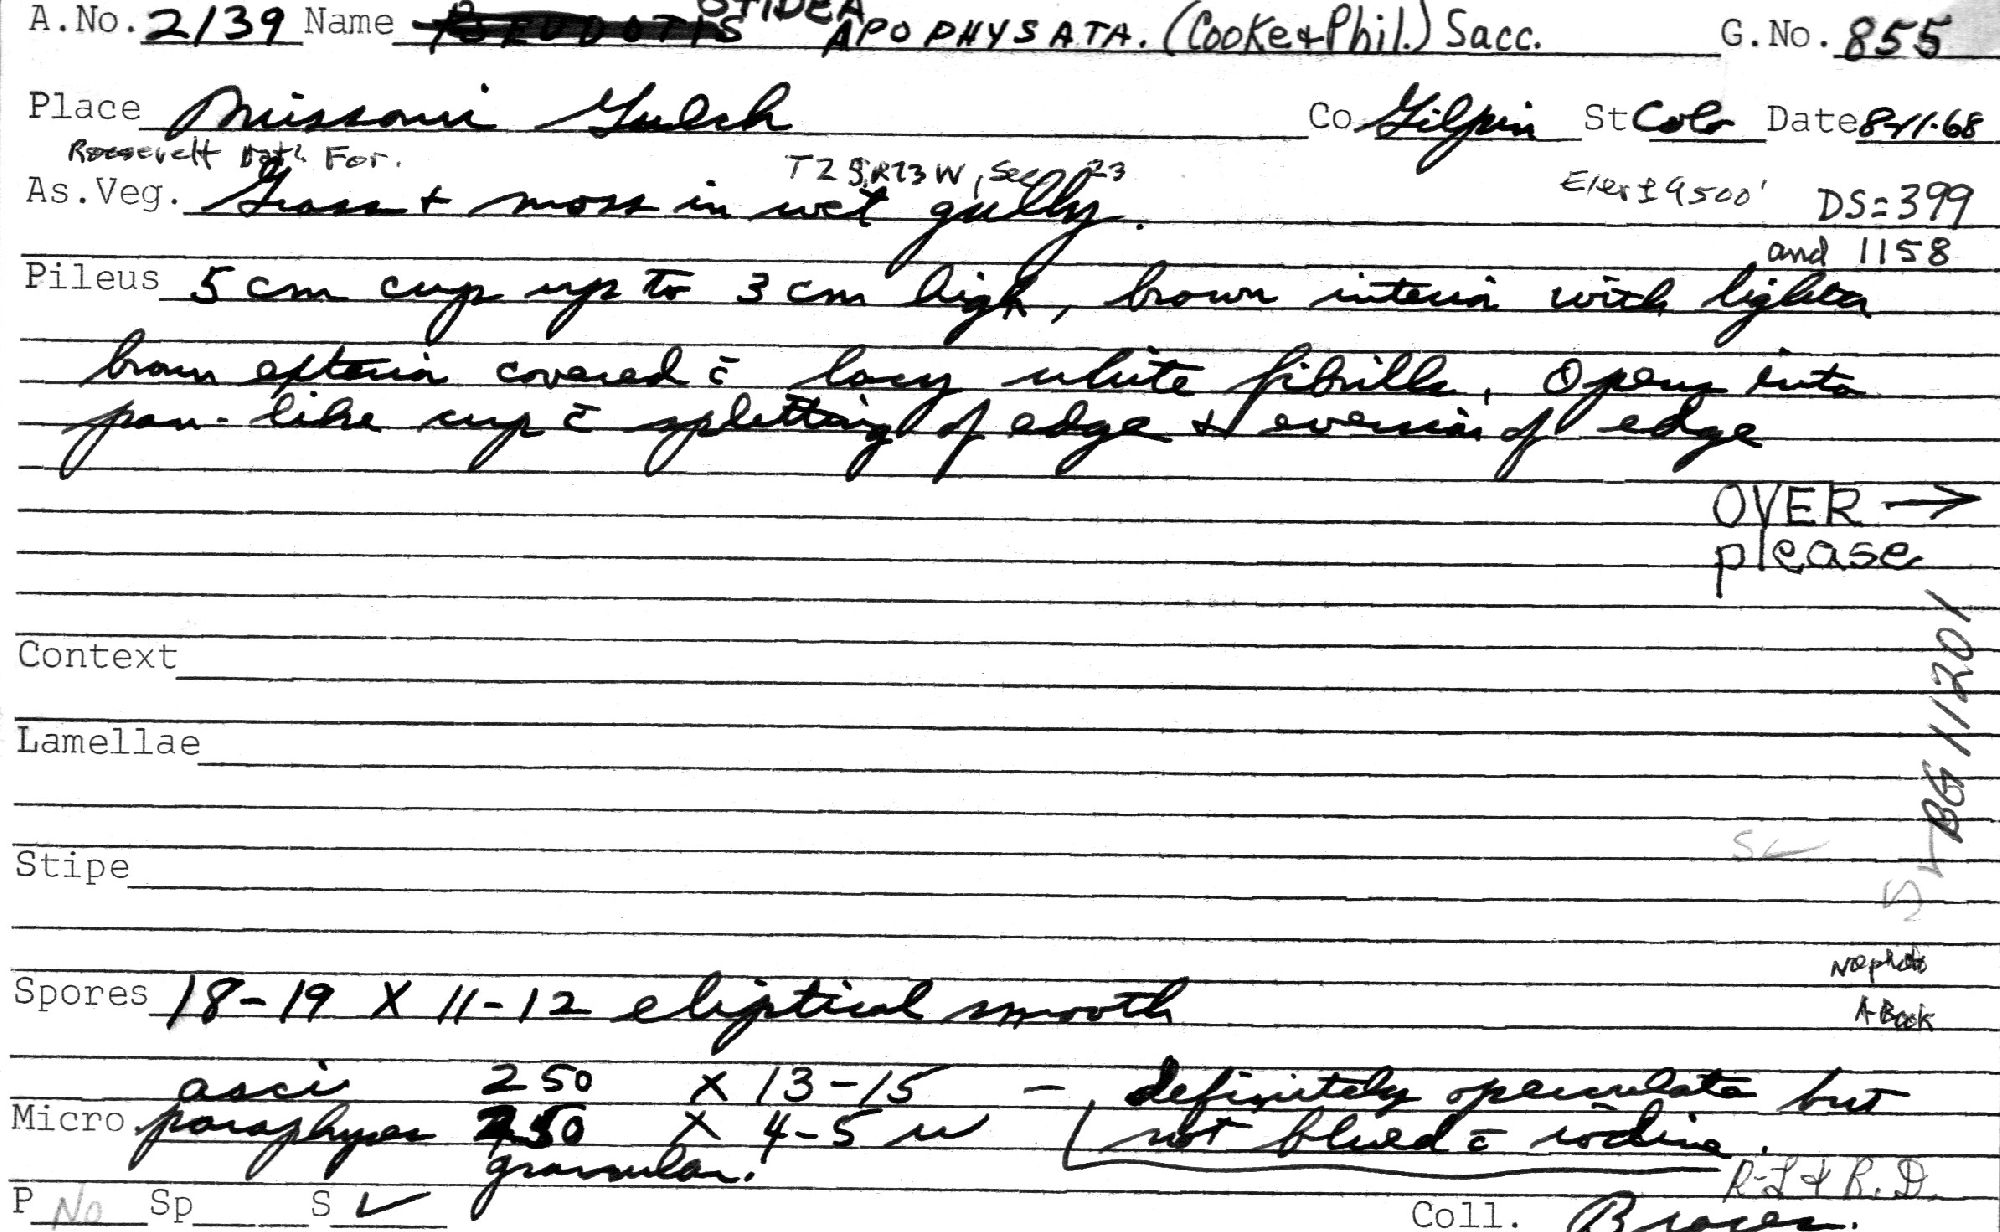 OTIDEA
A.No. 2139 Name APOPHYSATA. (Cooke & Phil.) Sacc. G.No. 855
Place Missouri Gulch Co Gilpin St Colo Date 8-11-68
Roosevelt Nat'l For. T2S, R73W, Sec 23
As.Veg. Grass + moss in wet gully. Elev ± 9500' DS=399
and 1158
Pileus 5 cm cup up to 3 cm high, brown interior with lighter
brown exterior covered c̄ lacy white fibrills, Opens into
pan-like cup c̄ splitting of edge + eversion of edge
OVER →
please
BG 11201
Context
Lamellae
Stipe
Spores 18-19 X 11-12 eliptical smooth
No photo
A-Book
asci 250 X 13-15 - definitely operculate but
Micro paraphyses 250 X 4-5 u not blued c̄ iodine.
granular.
R-L & R.D.
P No Sp S ✓ Coll. Brace.